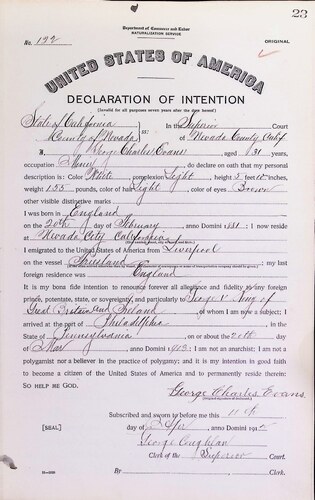 23
Department of Commerce and Labor
NATURALIZATION SERVICE
No. 122 ORIGINAL
UNITED STATES OF AMERICA
DECLARATION OF INTENTION
(Invalid for all purposes seven years after the date hereof)
State of California In the Superior Court
County of Nevada ss: of Nevada County, Calif
I, George Charles Evans, aged 31 years,
occupation Miner, do declare on oath that my personal
description is: Color White, complexion Light, height 5 feet 10 inches,
weight 155 pounds, color of hair Light, color of eyes Brown
other visible distinctive marks
I was born in England
on the 20th day of February, anno Domini 1881; I now reside
at Nevada City, California.
I emigrated to the United States of America from Liverpool
on the vessel Friesland; my last
foreign residence was England
It is my bona fide intention to renounce forever all allegiance and fidelity to any foreign
prince, potentate, state, or sovereignty, and particularly to George V King of
Great Britain and Ireland, of whom I am now a subject; I
arrived at the port of Philadelphia, in the
State of Pennsylvania, on or about the 20th day
of Mar, anno Domini; I am not an anarchist; I am not a
polygamist nor a believer in the practice of polygamy; and it is my intention in good faith
to become a citizen of the United States of America and to permanently reside therein:
SO HELP ME GOD.
George Charles Evans
Subscribed and sworn to before me this 11th
[SEAL] day of Apr, anno Domini 1912
George Coughlan
Clerk of the Superior Court.
By , Clerk.